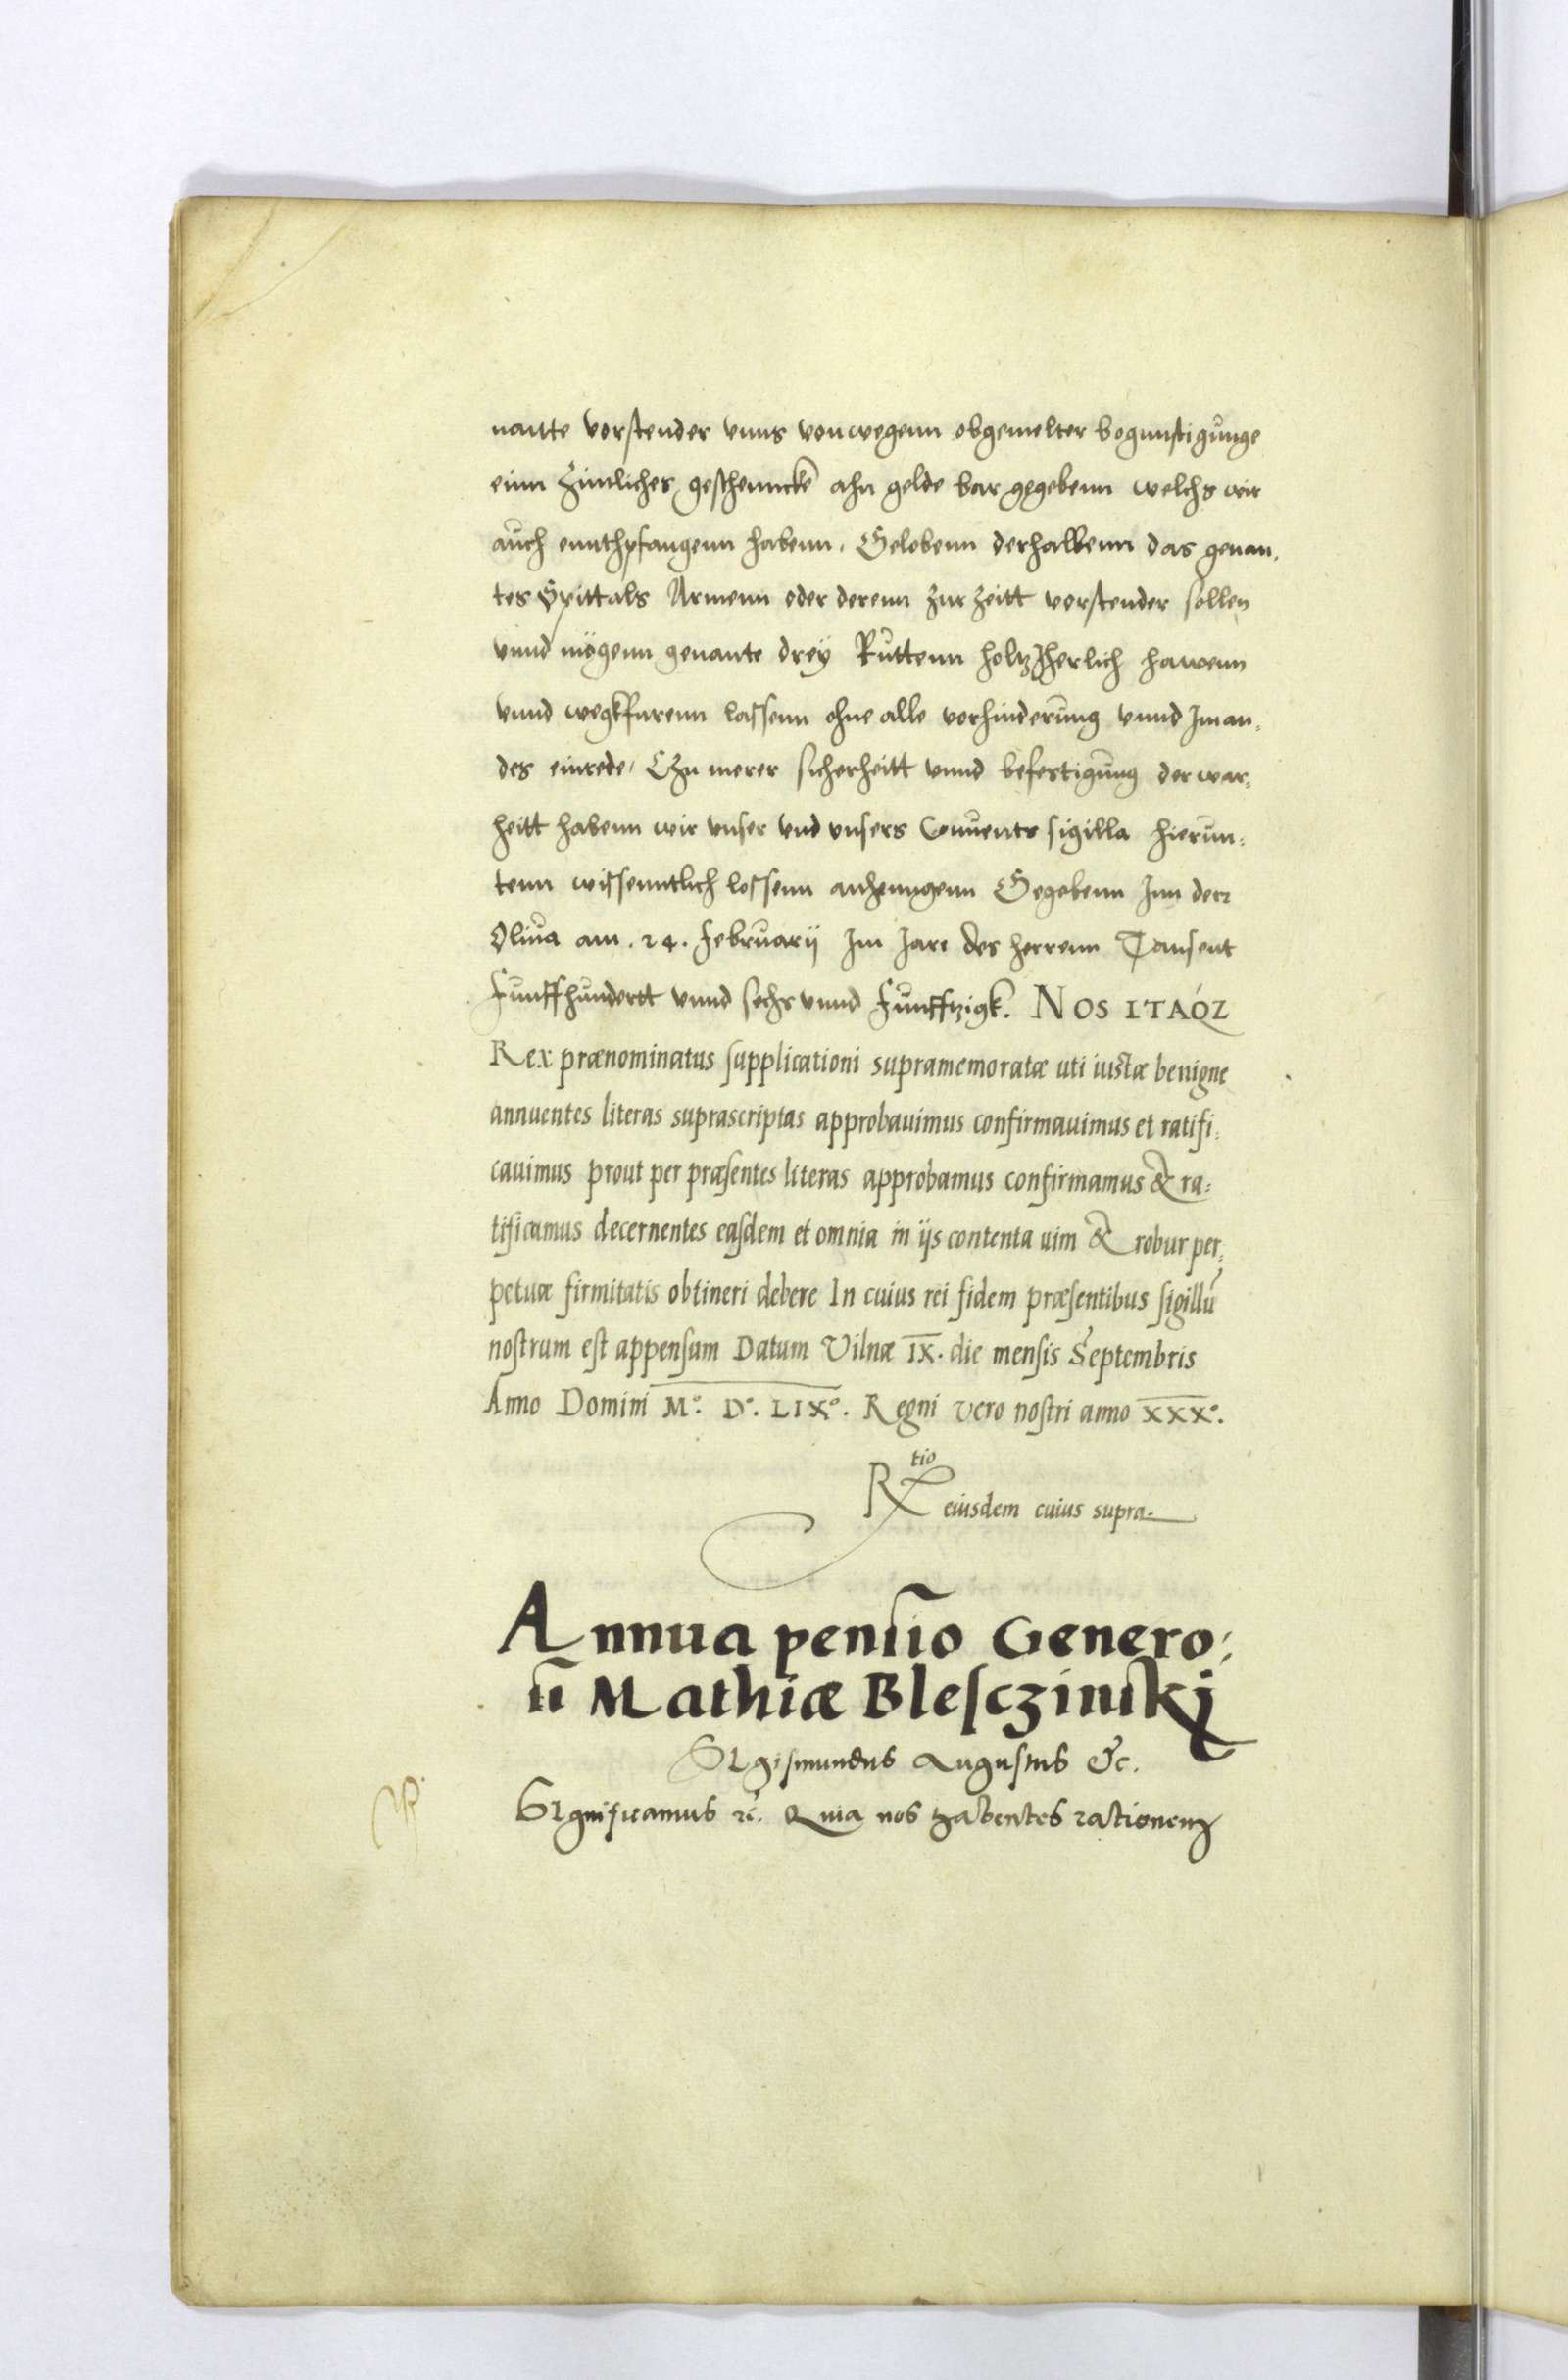 nante vorstender vnns vonwegenn obgemelter begunstigunge
einn zimliches geschenncke ahn gelde bar gegebenn welchs wir
auch ennthpfangenn habenn. Gelobenn derhalbenn das genan,
tes Spittals Armenn oder derenn zur zeitt vorstender sollen
vnnd mögenn genante dreÿ Ruttenn holtz Jherlich hawenn
vnnd wegkfurenn lassenn ohne alle vorhinderung vnnd Jman,
des einrede, Czu merer sicherheitt vnnd befestigung der war,
heitt habenn wir vnser vnd vnsers Conuents sigilla hierun,
tenn wissenntlich lossenn anhenngenn Gegebenn Jnn der
Oliua am . 24 . Februarij Jm Jare des herrenn Tausent
Funffhundertt vnnd sechs vnnd Funfftzigk. NOS ITAQZ
Rex prænominatus supplicationi supramemoratæ uti iustæ benigne
annuentes literas suprascriptas approbauimus confirmauimus et ratifi,
cauimus prout per præsentes literas approbamus confirmamus & ra,
tificamus decernentes easdem et omnia in ijs contenta uim & robur per,
petuæ firmitatis obtineri debere In cuius rei fidem præsentibus sigillū
nostrum est appensum Datum Vilnæ IX. die mensis Septembris
Anno Domini M°. D°. LIX°. Regni vero nostri anno XXX°.
Rtio eiusdem cuius supra.
Annua pensio Genero,
si Mathiæ Blesczinskj
SIgismundus Augustus &c.
SIgnificamus &c. Quia nos habentes rationem